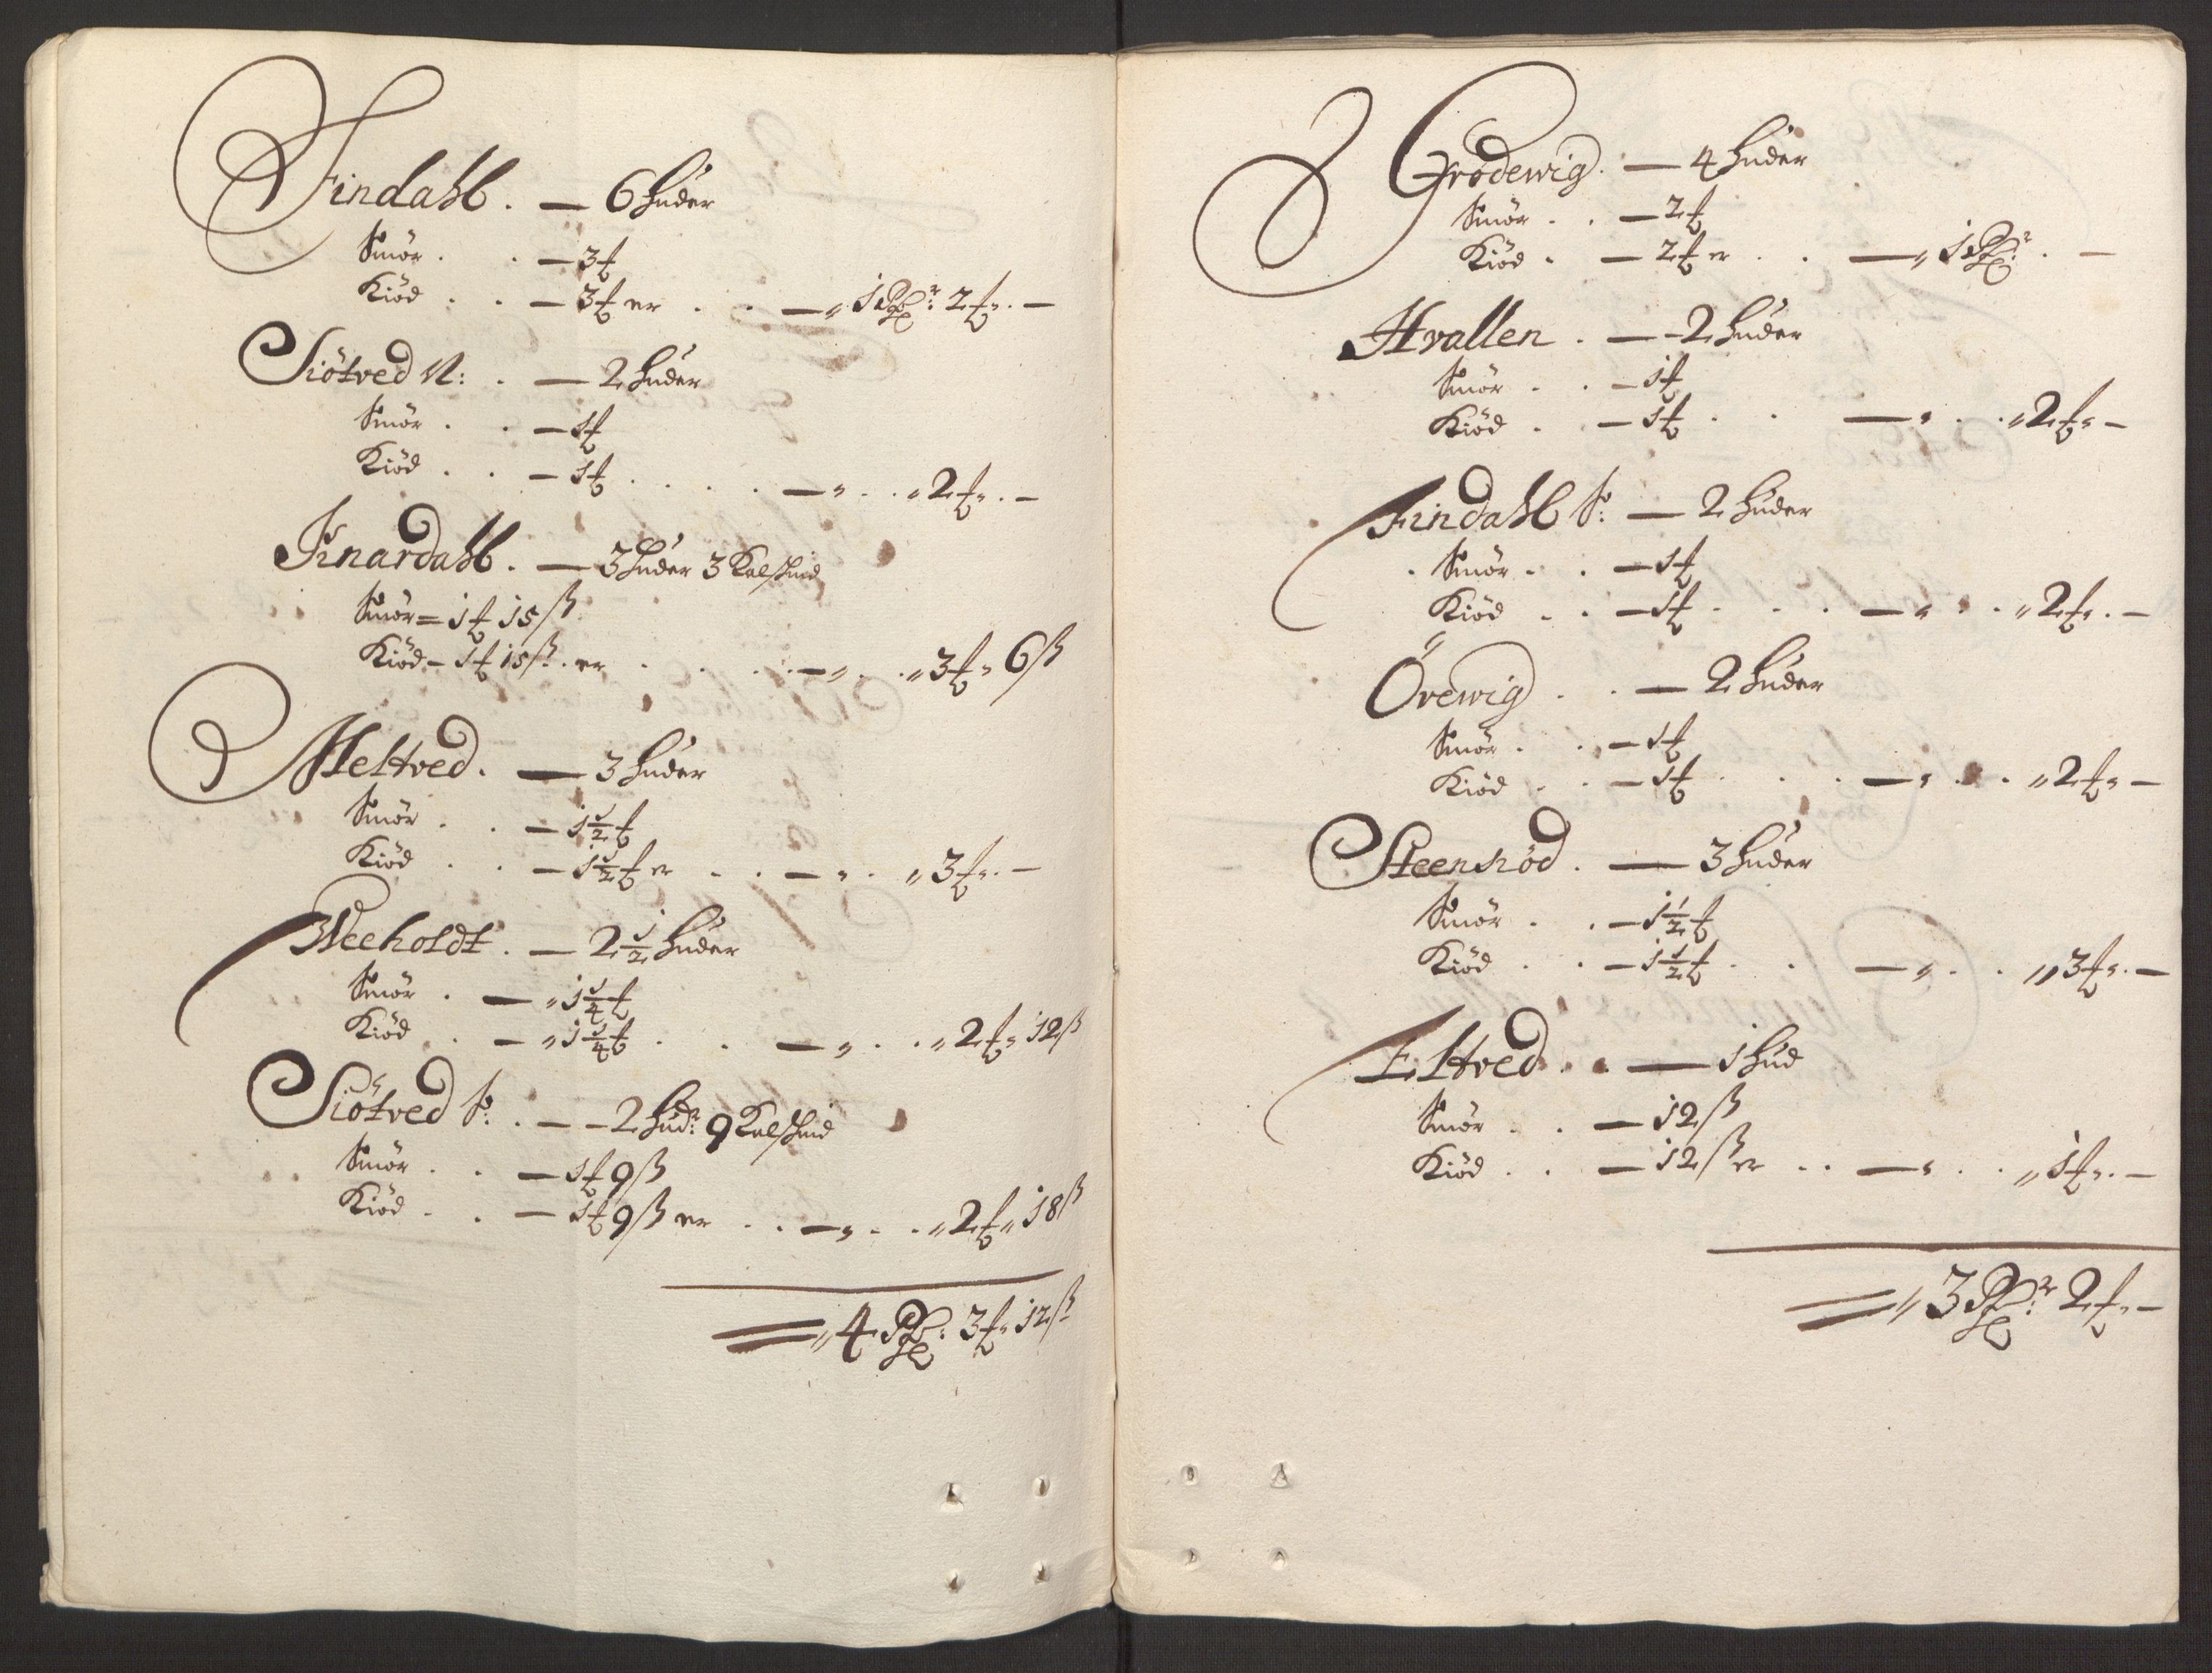 Findahl . — 6 huder
Smör . . — 3 ℔
Kiöd . . — 3 ℔ er . . — „ 1 Rdr 2 ℔ „ . —
Siötved N: . — 2 huder
Smör . . — 1 ℔
Kiöd . . — 1 ℔ . . . . — „ . . „ 2 ℔ „ . —
Knardahl . — 3 huder 3 Kalfskind
Smör = 1 ℔ 15 ß
Kiöd – 1 ℔ 15 ß . er . . . — „ . . „ 3 ℔ „ 6 ß
Meltved . — 3 huder
Smör . . — 1½ ℔
Kiöd . . — 1½ ℔ er . . — „ . „ 3 ℔ „ . —
Weeholdt . — 2½ huder
Smör . — „ 1¼ ℔
Kiöd . — „ 1¼ ℔ . . — „ . . „ 2 ℔ „ 12 ß
Siötved S: . — 2 hudr: 9 Kalfskind
Smör . . — 1 ℔ 9 ß
Kiöd . . — 1 ℔ 9 ß er . . — „ . . „ 2 ℔ „ 18 ß
= „ 4 Rd: 3 ℔ „ 12 ß
Grödewig . — 4 huder
Smör . . — 2 ℔
Kiöd . — 2 ℔ er . . — „ 1 Rdr . —
Hvallen . — 2 huder
Smör . . — 1 ℔
Kiöd . — 1 ℔ . . — „ . . „ 2 ℔ „ —
Findahl S: — 2 huder
Smör . . — 1 ℔
Kiöd . . — 1 ℔ . . . — „ . . „ 2 ℔ „ . —
Örewig . . — 2 huder
Smör . . — 1 ℔
Kiöd . . — 1 ℔ . . . — „ . . „ 2 ℔ „ —
Steensröd . — 3 huder
Smör . . — 1½ ℔
Kiöd . . — 1½ ℔ . . — „ . . „ 3 ℔ „ . —
Eltved . . — 1 hud
Smör . . — 12 ß
Kiöd . . — 12 ß er . . — „ . . „ 1 ℔ „ . —
= „ 3 Rdr 2 ℔ „ —